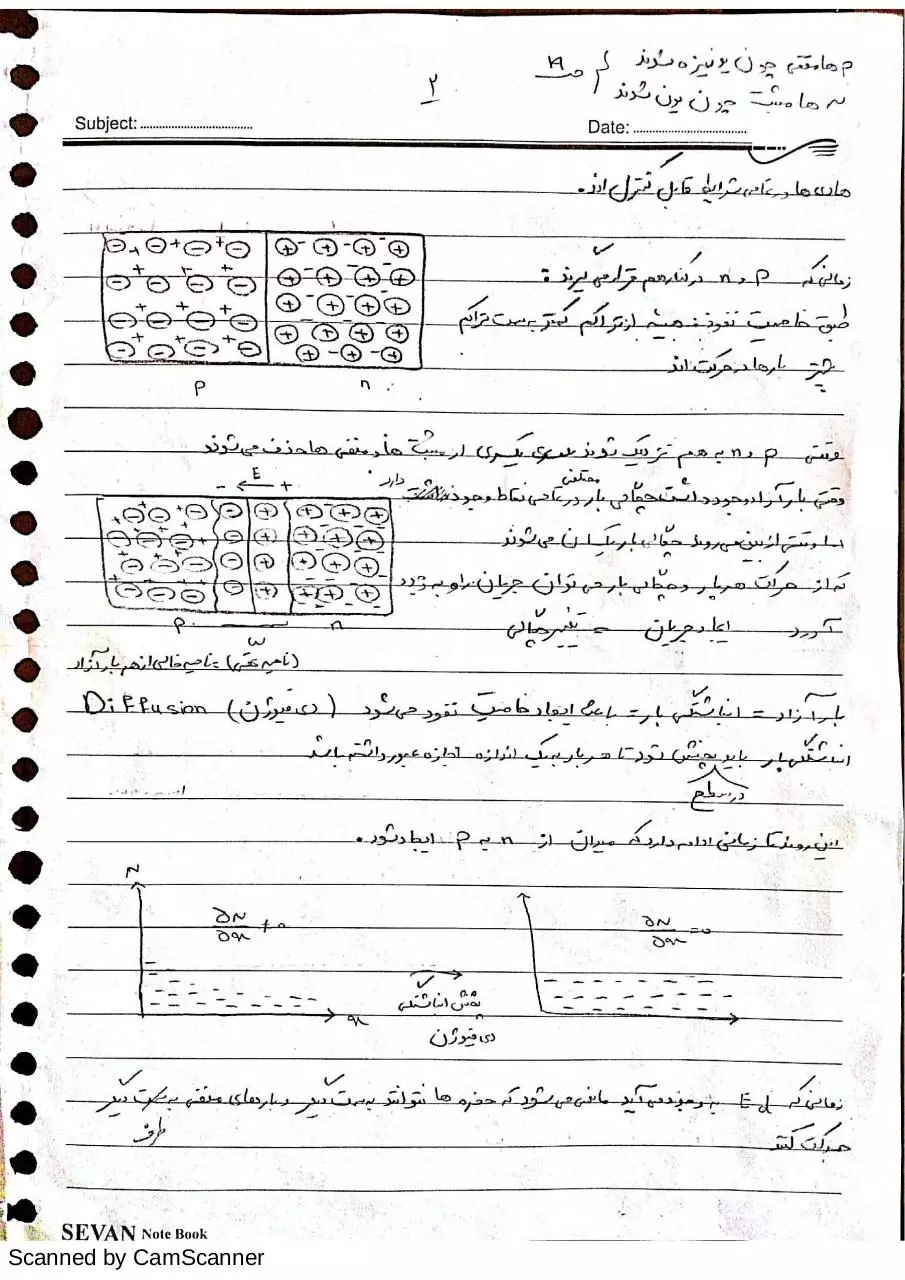 p ها منفی چون یونیزه شوند
n ها مثبت چون یون شوند
۲
Subject:
Date:
هادی ها در تمامی شرایط قابل کنترل اند.
زمانی که p و n در کنار هم قرار می گیرند :
طبق خاصیت نفوذ : همیشه از تراکم کمتر به سمت تراکم
بارها در حرکت اند
p n
وقتی p و n به هم نزدیک شوند یکسری از مثبت ها و منفی ها حذف می شوند
- ← +
E
وقتی بار آزاد وجود داشت چگالی بار در تمامی نقاط وجود
مختلفی
دارد
اما وقتی از بین می روند چگالی بار یکسان می شوند
که از حرکت هر بار و چگالی بار می توان جریان را به وجود
آورد ایجاد جریان = تغییر چگالی
p n
ω
(ناحیه تهی) = ناحیه خالی از هر بار آزاد
بار آزاد = انباشتگی بار = باعث ایجاد خاصیت نفوذ می شود (دی فیوژن) Diffusion
انباشتگی بار باید پخش شود تا هر بار به یک اندازه اجازه عبور داشته باشد
در سطح
این روند تا زمانی ادامه دارد که میدان از n به p ایجاد شود.
N
∂N/∂x ≠ 0
x
∂N/∂x = 0
پخش انباشتگی
دی فیوژن
زمانی که E به وجود می آید مانع می شود که حفره ها نتوانند به سمت دیگر و بارهای منفی به سمت دیگر
طرف
حرکت کنند
SEVAN Note Book
Scanned by CamScanner